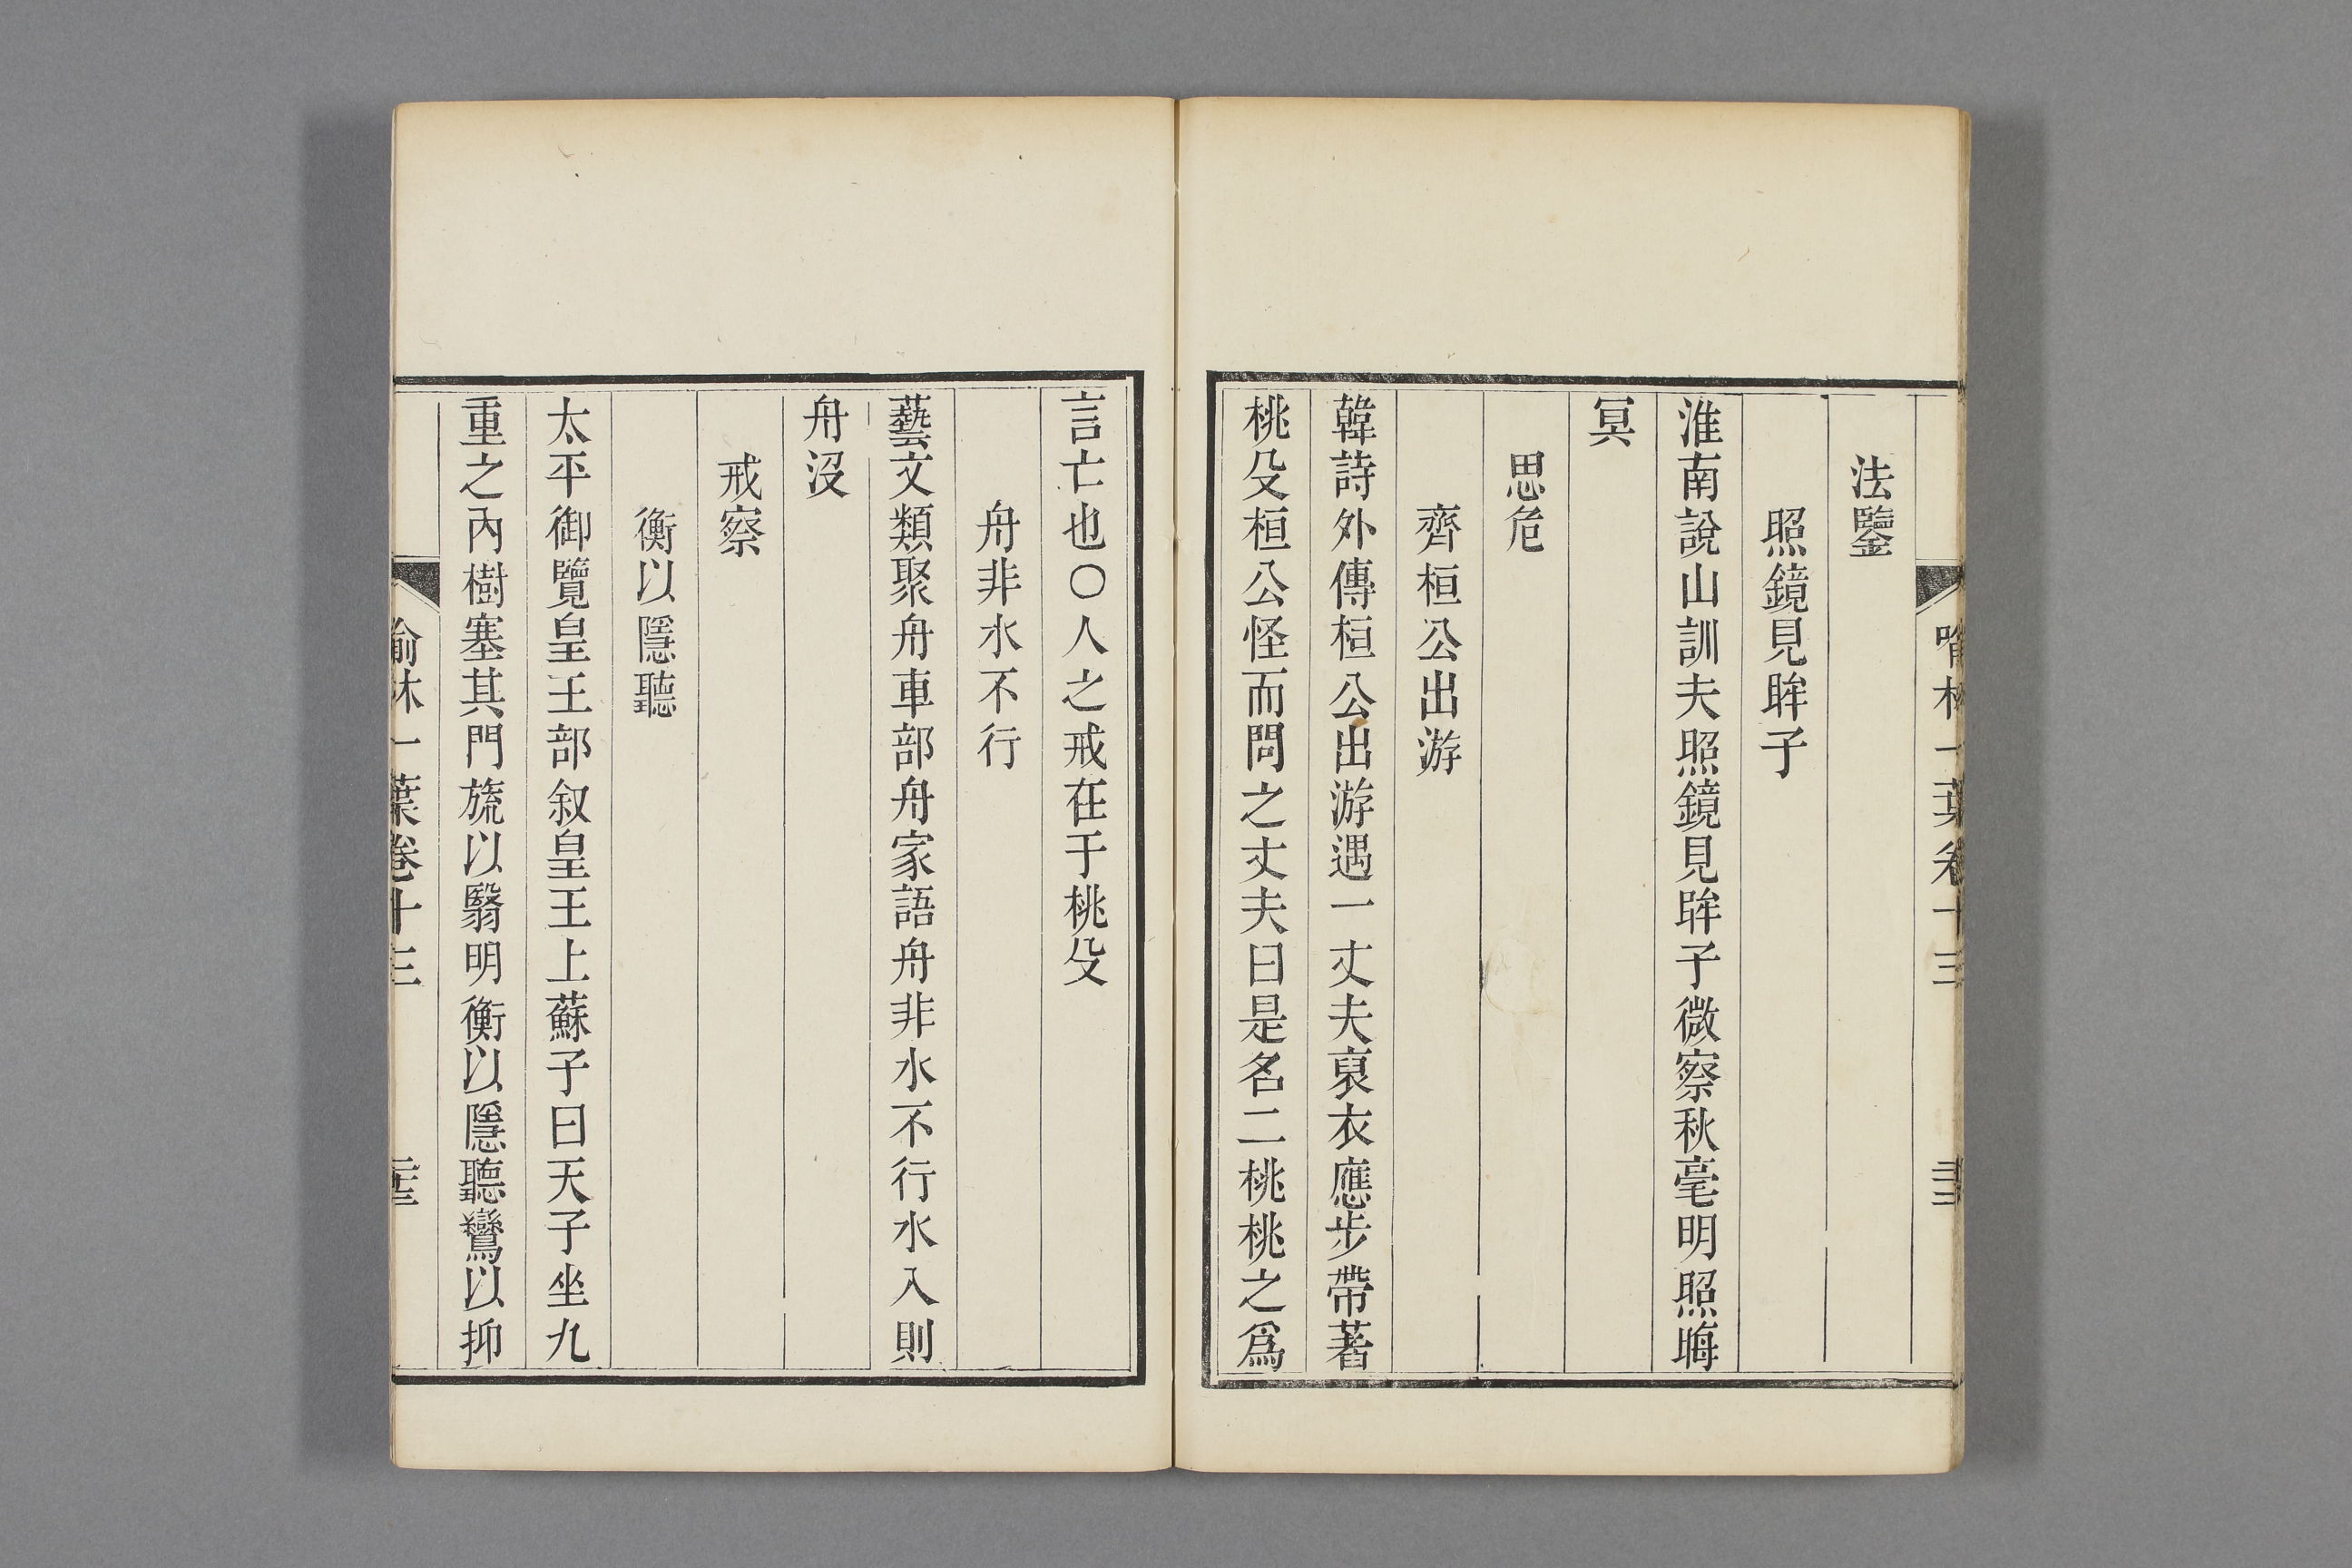 法鑒
照鏡見眸子
淮南說山訓夫照鏡見眸子微察秋毫明照晦
冥
思危
齊桓公出游
韓詩外傳桓公出游遇一丈夫裒衣應步帶著
桃殳桓公怪而問之丈夫曰是名二桃桃之爲
言亡也〇人之戒在于桃殳
舟非水不行
藝文類聚舟車部舟家語舟非水不行水入則
舟沒
戒察
衡以隱聽
太平御覽皇王部叙皇王上蘇子曰天子坐九
重之內樹塞其門旒以翳明衡以隱聽鸞以抑
喻林一葉卷十三